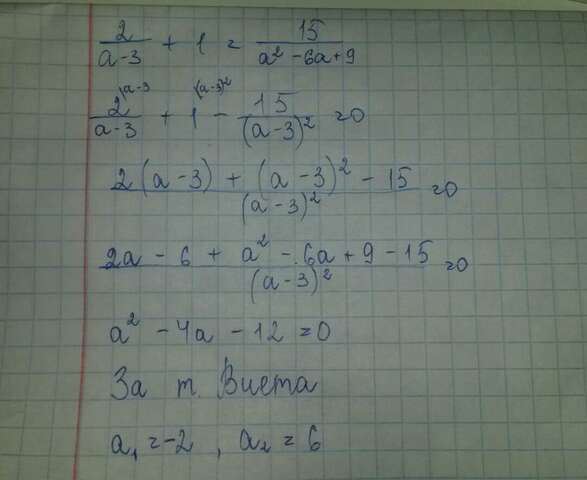 2/(a-3) + 1 = 15/(a² - 6a + 9)
2^\a-3/(a-3) + 1^\(a-3)² - 15/(a-3)² = 0
(2(a-3) + (a-3)² - 15)/(a-3)² = 0
(2a - 6 + a² - 6a + 9 - 15)/(a-3)² = 0
a² - 4a - 12 = 0
За т. Виета
a₁ = -2 , a₂ = 6